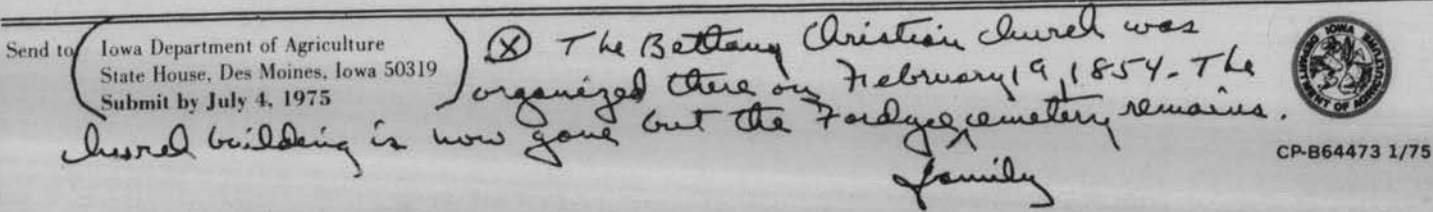 Send to Iowa Department of Agriculture
State House, Des Moines, Iowa 50319
Submit by July 4, 1975
Ⓧ The Bethany Christian Church was
organized there on February 19, 1854. The
church building is now gone but the Fordyce cemetery remains.
family
IOWA DEPARTMENT OF AGRICULTURE
CP-B64473 1/75